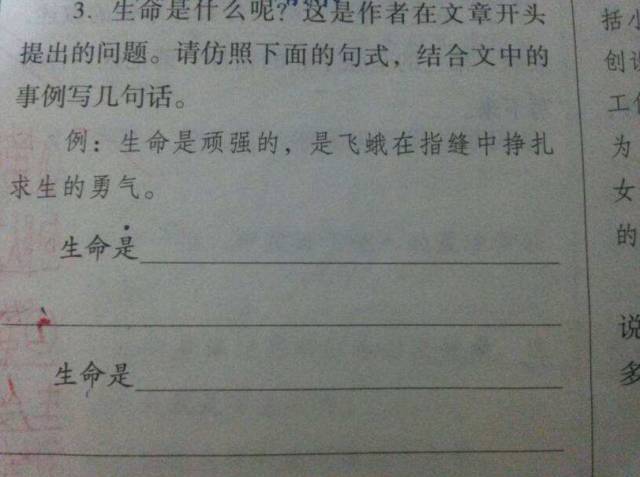 3. 生命是什么呢？这是作者在文章开头
提出的问题。请仿照下面的句式，结合文中的
事例写几句话。
例：生命是顽强的，是飞蛾在指缝中挣扎
求生的勇气。
生命是
生命是
括小
创
工
为
女
的
说
多